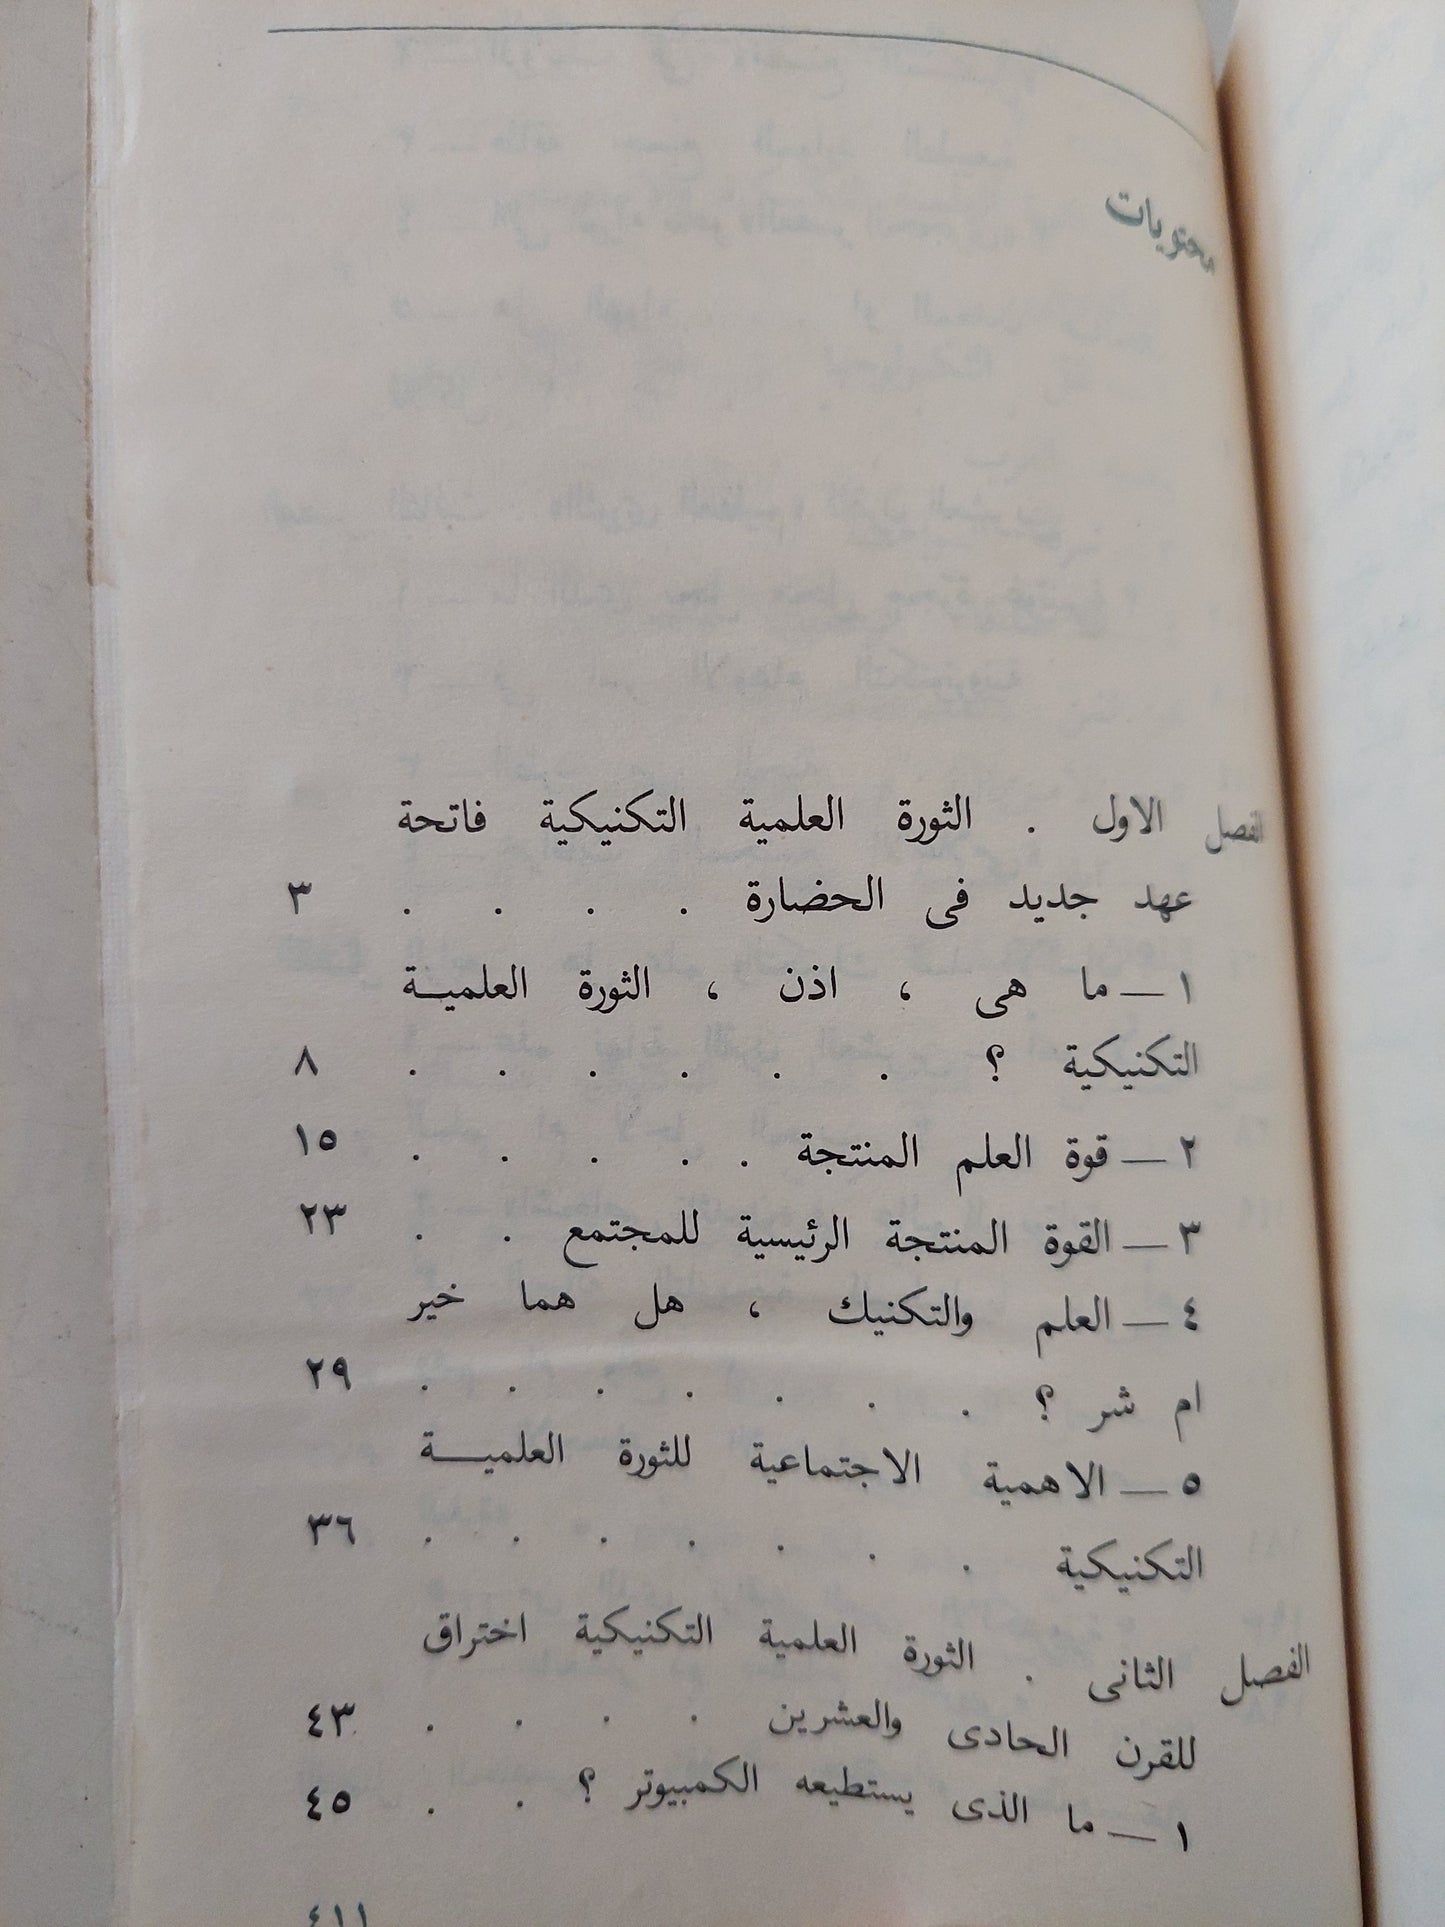 محتويات
الفصل الاول . الثورة العلمية التكنيكية فاتحة
عهد جديد فى الحضارة . . . . ٣
١ — ما هى ، اذن ، الثورة العلميــة
التكنيكية ؟ . . . . . . ٨
٢ — قوة العلم المنتجة . . . . . ١٥
٣ — القوة المنتجة الرئيسية للمجتمع . . ٢٣
٤ — العلم والتكنيك ، هل هما خير
ام شر ؟ . . . . . . . ٢٩
٥ — الاهمية الاجتماعية للثورة العلميــة
التكنيكية . . . . . . . ٣٦
الفصل الثانى . الثورة العلمية التكنيكية اختراق
للقرن الحادى والعشرين . . . . ٤٣
١ — ما الذى يستطيعه الكمبيوتر ؟ . . ٤٥
٤١١